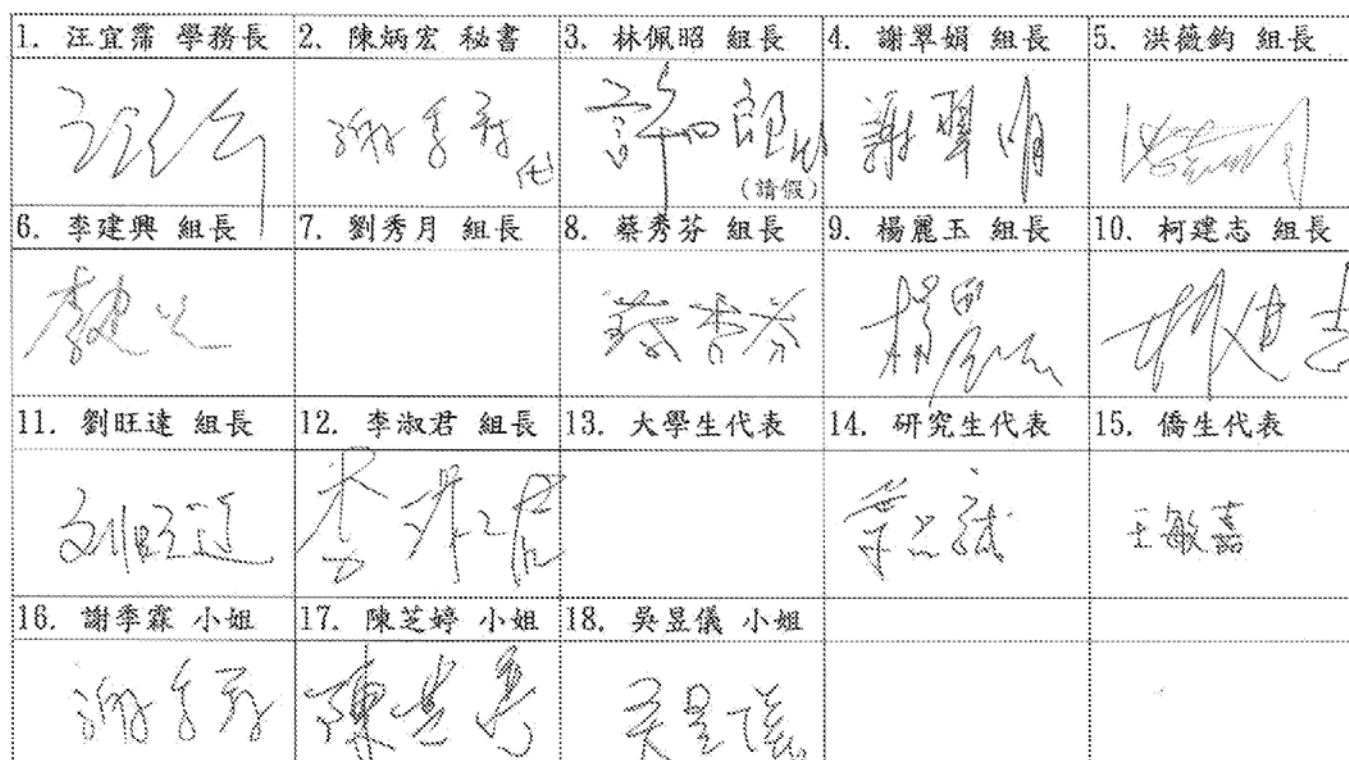 1. 汪宜霈 學務長 2. 陳炳宏 秘書 3. 林佩昭 組長 4. 謝翠娟 組長 5. 洪薇鈞 組長
謝季霖 代 許 郎 謝翠娟
(請假)
6. 李建興 組長 7. 劉秀月 組長 8. 蔡秀芬 組長 9. 楊麗玉 組長 10. 柯建志 組長
李建兴 蔡秀芬 楊麗玉 柯建志
11. 劉旺達 組長 12. 李淑君 組長 13. 大學生代表 14. 研究生代表 15. 僑生代表
刘旺達 李淑君 王敏嘉
16. 謝季霖 小姐 17. 陳芝婷 小姐 18. 吳昱儀 小姐
謝季霖 陳芝婷 吳昱儀